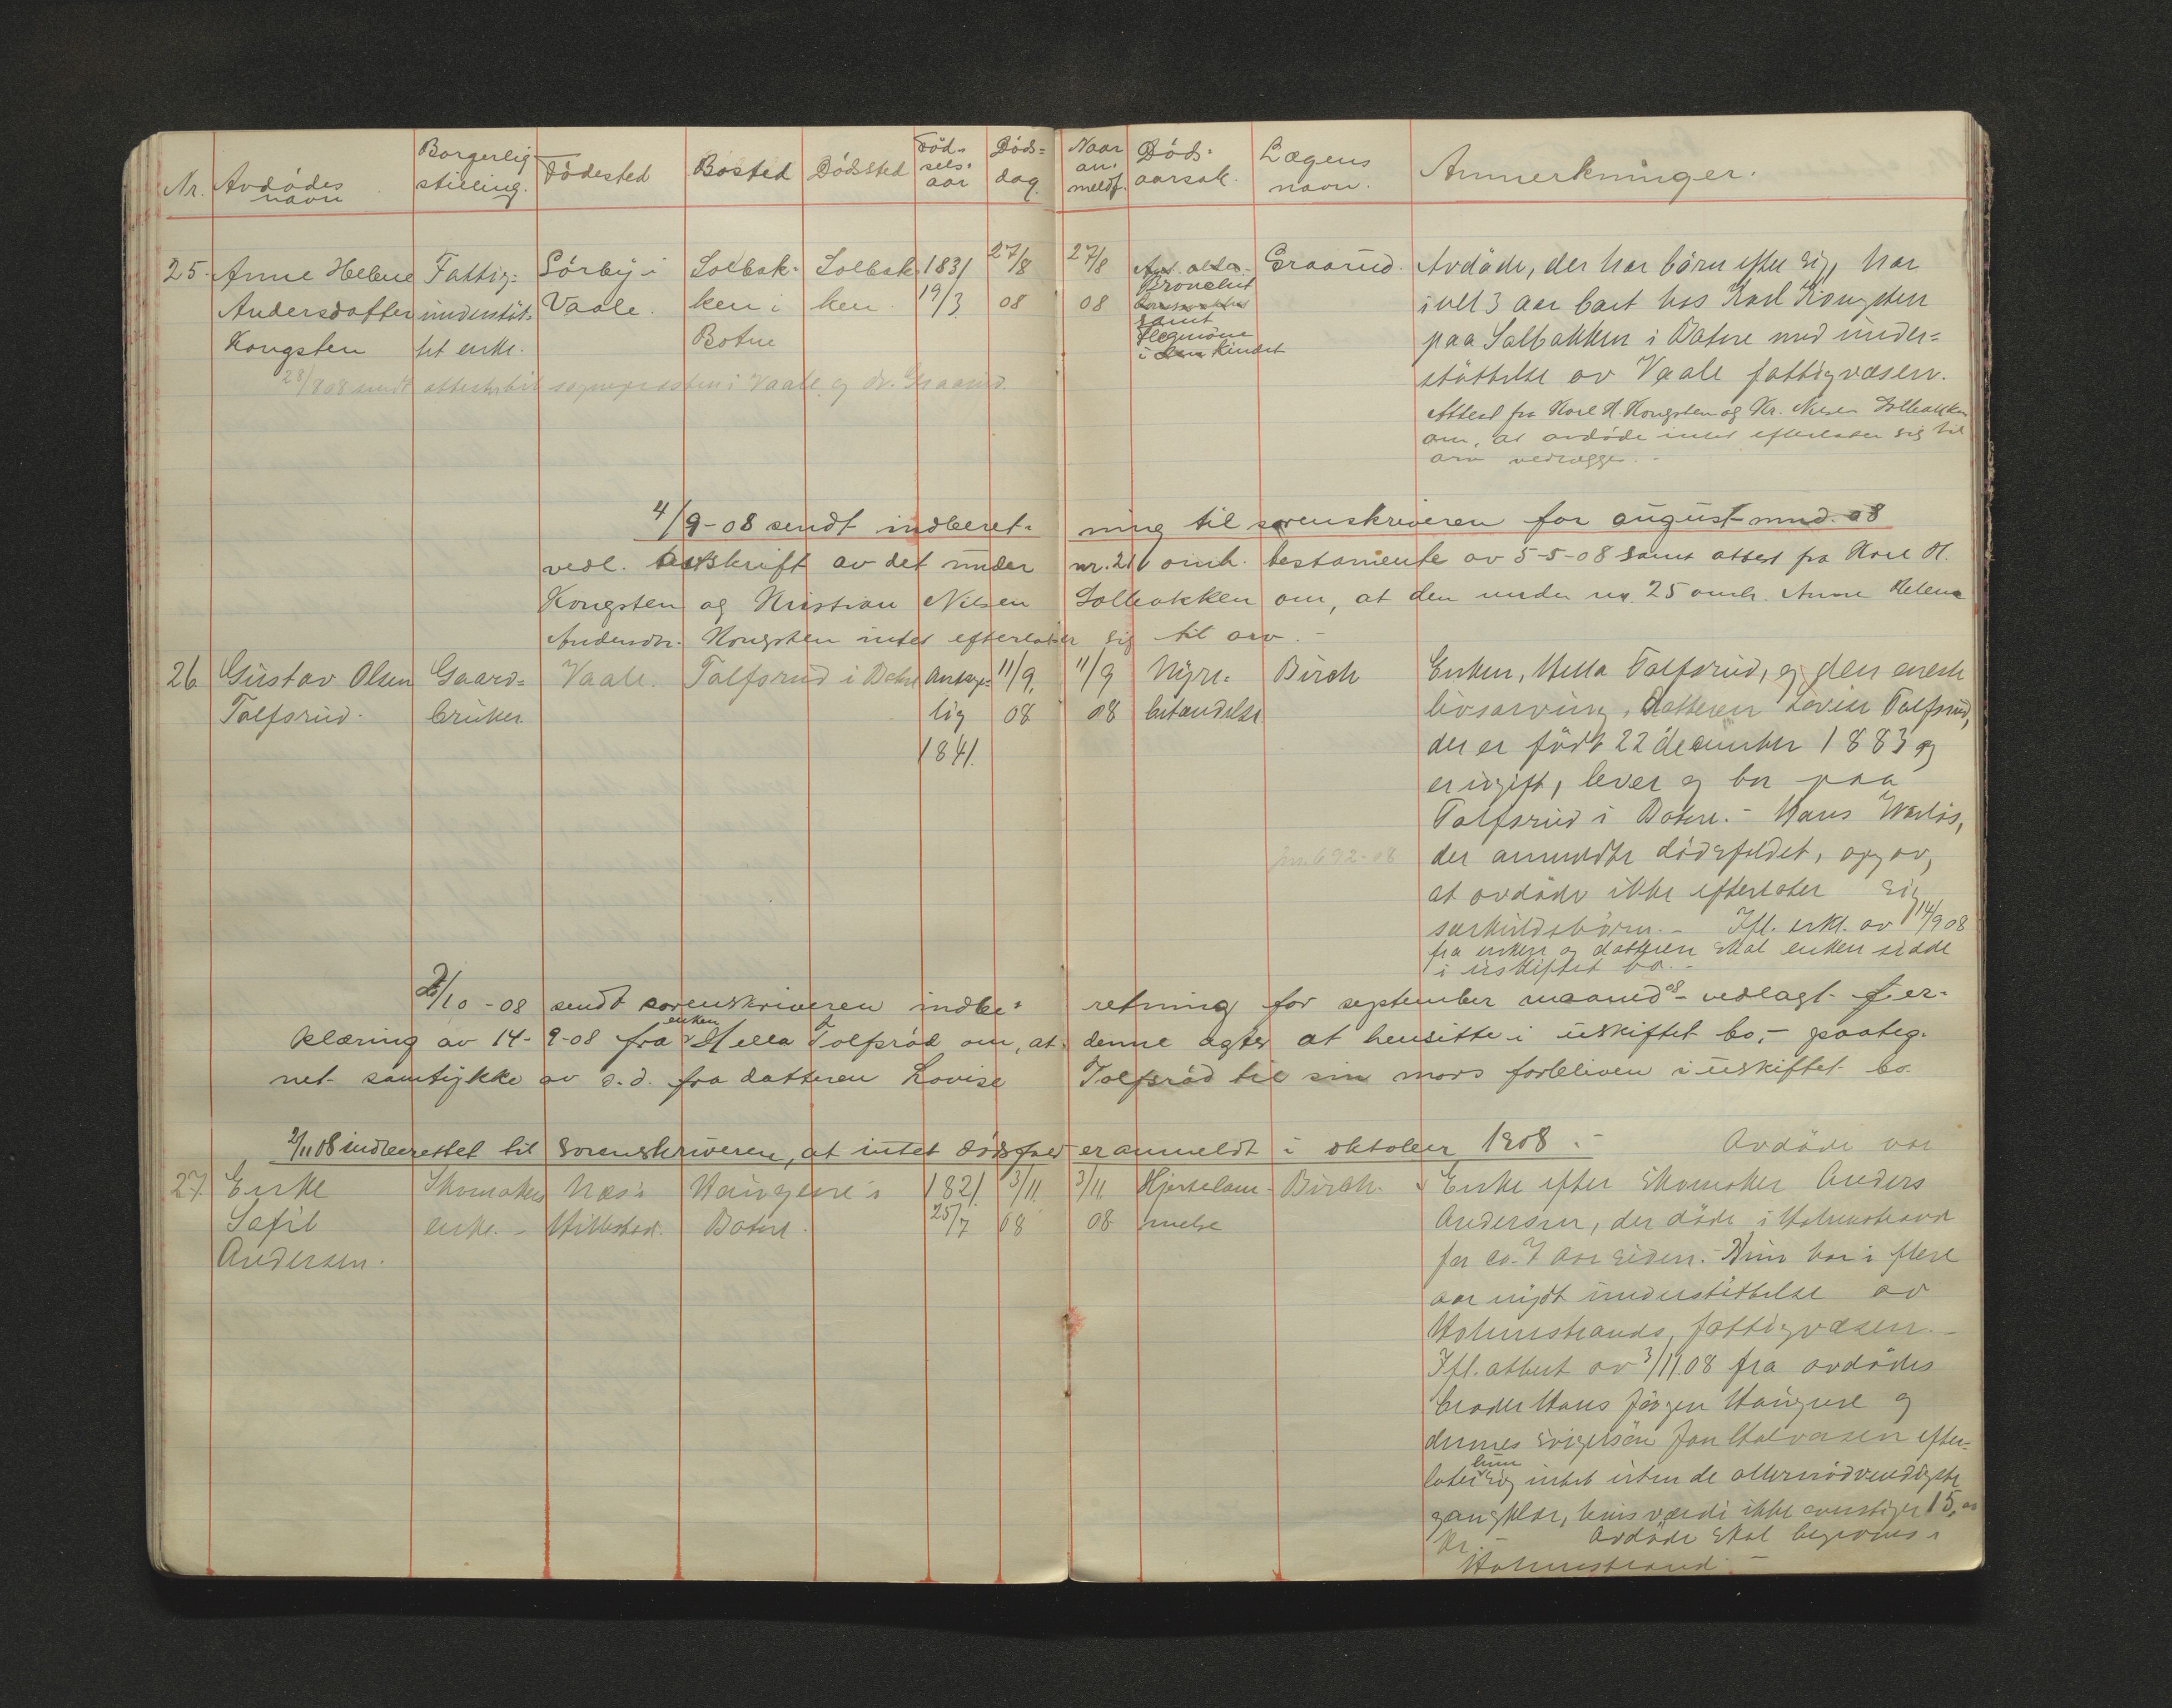 Nr. Avdödes navn Borgerlig stilling. Födested Bosted Dödssted Födselsaar Dödsdag Naar anmeldt. Dödsaarsak. Lægens navn. Anmerkninger.
25. Anne Helene Fattig= Sörby i Solbak= Solbak 1831 27/8 27/8 Graarud. Avdöde, der har börn efter sig, har
Andersdatter understöt= Vaale. ken i ken 19/3 08 08 Bronchit i vel 3 aar boet hos Karl Kongsten
Kongsten tet enke. Botne samt Flegmone i kindet paa Solbakken i Botne med under=
28/8 08 sendt sognepresten i Vaale og dr. Graarud. støttelse av Vaale fattigvæsen.
Attest fra Karl H. Kongsten og Kr. Nilsen Solbakken
om, at avdöde intet efterlater sig til
arv
4/9-08 sendt indberet= ning til sorenskriveren for august mnd. 08
vedl. avskrift av det under nr. 21 omh. testamente av 5-5-08 samt attest fra Karl H.
Kongsten og Kristian Nilsen Solbakken om, at den under nr. 25 omh. Anne Helene
Andersdr. Kongsten intet efterlater sig til arv. -
26 Gustav Olsen Gaard= Vaale. Tolfsrud i Botne Antage= 11/9. 11/9 Nyre= Birch Enken, Hella Tolfsrud, og den eneste
Tolfsrud. bruker lig 08 08 betændelse livsarving, datteren Lovise Tolfsrud,
1841. der er födt 22 december 1883 og
er ugift, lever og bor paa
Tolfsrud i Botne. - Hans
jnr. 692-08 der anmeldte dödsfaldet, opgav,
at avdöde ikke efterlater sig
særkuldsbörn. - Ifl. erkl. av 14/9 08
fra enken og datteren skal enken sidde
i uskiftet bo. -
2/10 -08 sendt sorenskriveren indbe= retning for september maaned 08 - vedlagt er=
klæring av 14-9-08 fra enken Hella Tolfsröd om, at denne agter at hensitte i uskiftet bo, - paateg=
net samtykke av s.d. fra datteren Lovise Tolfsröd til sin mors forbliven i uskiftet bo.
2/11 08 indberettet til sorenskriveren, at intet dödsfald er anmeldt i oktober 1908. -
Avdöde var
27. Enke Skomakers Næs i Haugene i 1821 3/11 3/11 Hjertelam= Birch. Enke efter skomaker Anders
Sofie enke. - Hillestad. Botne. 25/7 08 08 melse Andersen, der döde i Holmestrand
Andersen. for ca. 7 aar siden. - Hun har i flere
aar nydt understöttelse av
Holmestrands fattigvæsen. -
Ifl. attest av 3/11.08 fra avdödes
broder Hans Jörgen Haugene og
dennes svigersön Halvorsen efter=
later hun sig intet uten de allernödvendigste
gangklær, hvis værdi ikke overstiger 15,00
kr. - Avdöde skal begraves i
Holmestrand. -